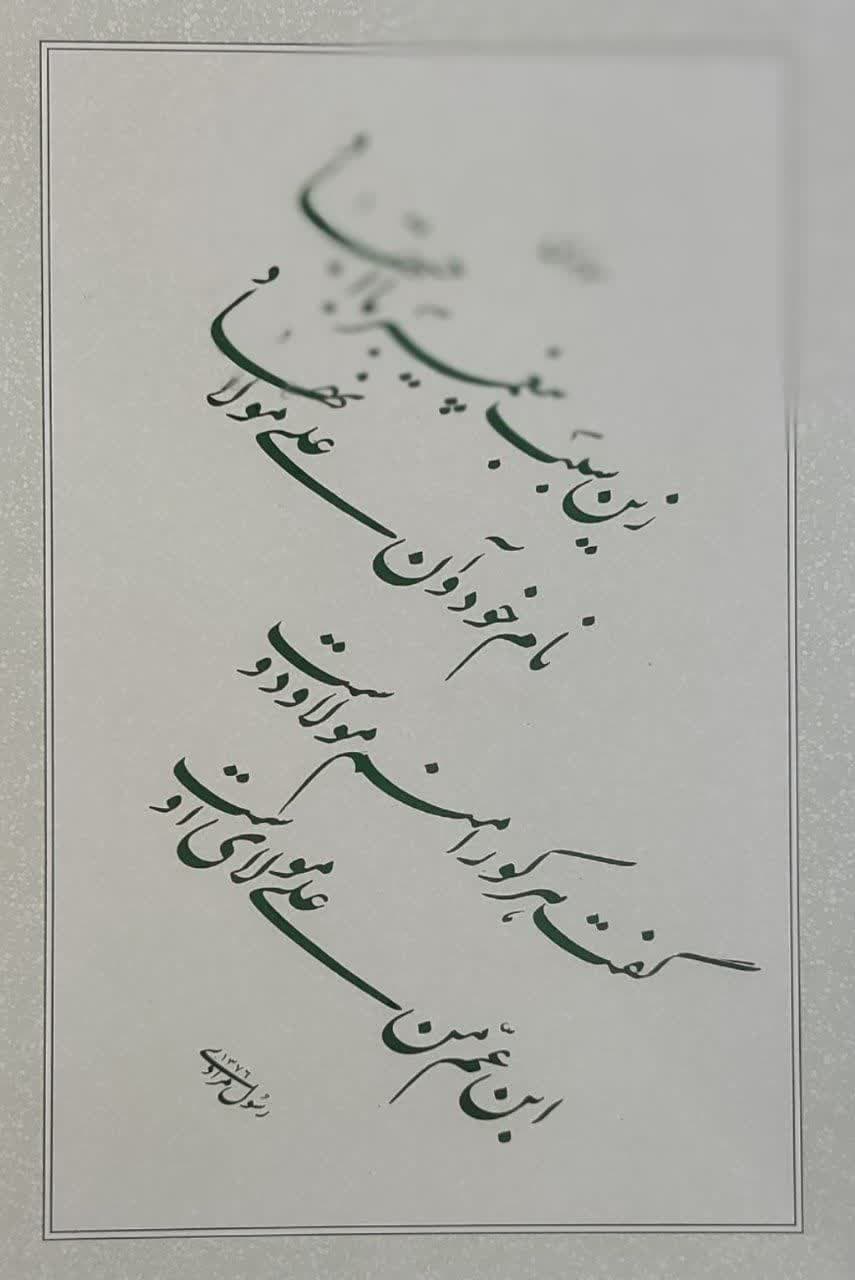 زین سبب پیغمبر با اجتهاد
نام خود وآن علی مولا نهاد
گفت هر کو را منم مولا و دوست
ابن عم من علی مولای اوست
رسول مرادی ۱۳۷۶